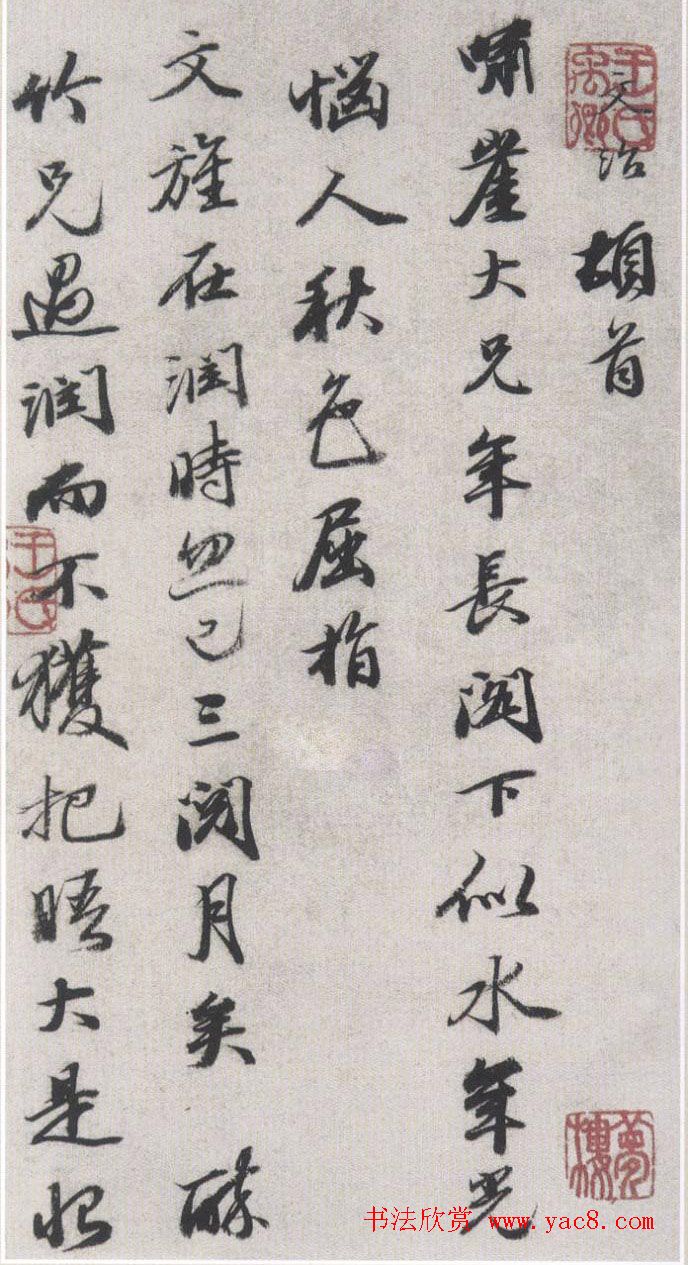 文治頓首
嘯崖大兄年長閣下似水年光
惱人秋色屈指
文旌在潤時忽已三閱月矣 酴
竹兄過潤而不獲把晤大是悵
王氏禹卿
夢樓
王氏
书法欣赏 www.yac8.com